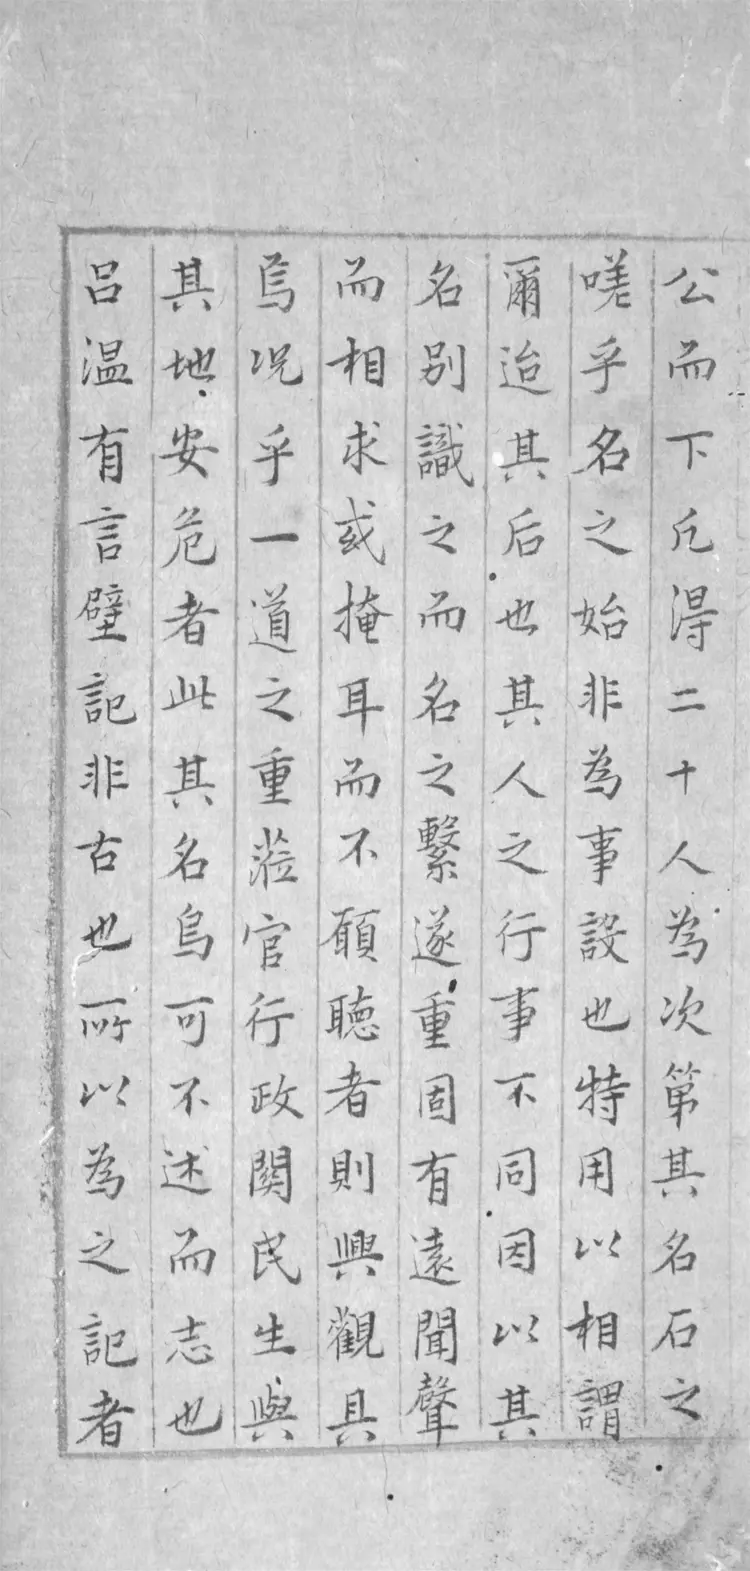 公而下凡得二十人為次第其名石之
嗟乎名之始非為事設也特用以相謂
爾迨其后也其人之行事不同因以其
名別識之而名之繫遂重固有遠聞聲
而相求或掩耳而不願聽者則興觀具
焉况乎一道之重蒞官行政關民生與
其地安危者此其名烏可不述而志也
呂温有言壁記非古也所以為之記者